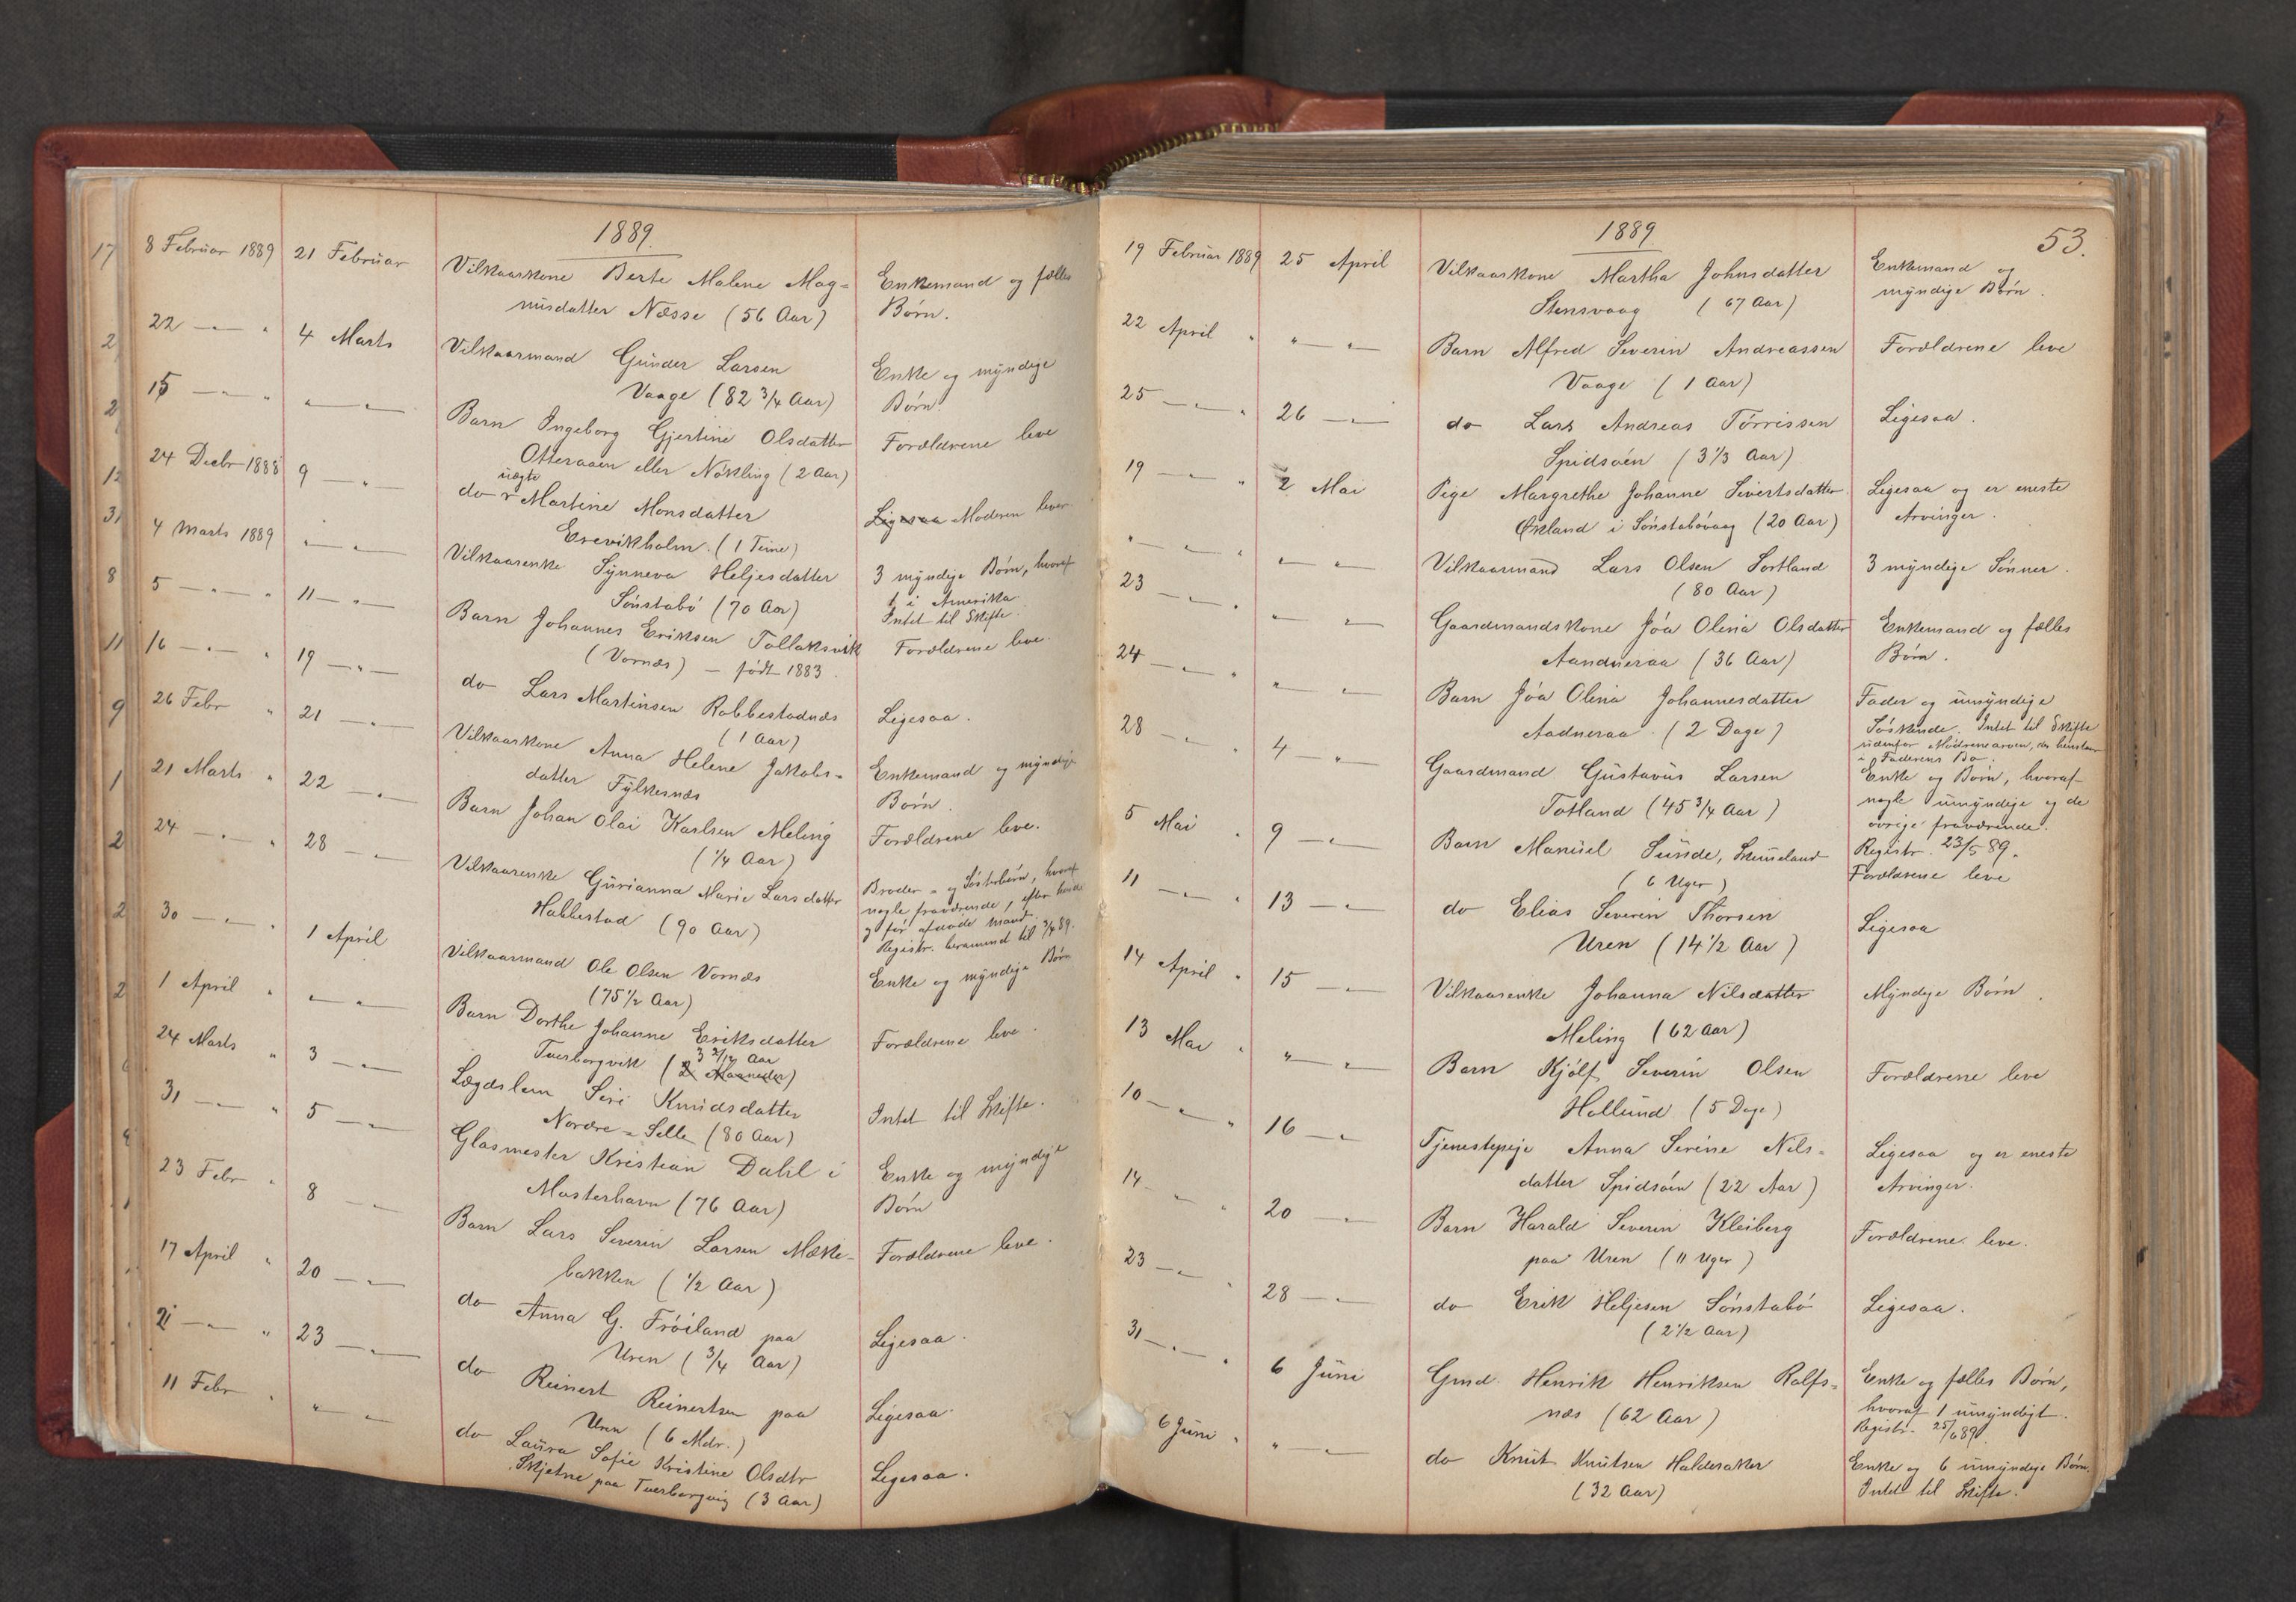 1889.
8 Februar 1889 21 Februar Vilkaarskone Berte Malene Mag= Enkemand og fælles
nusdatter Næsse (56 Aar) Børn.
22 — " — " 4 Marts Vilkaarmand Gunder Larsen Enke og myndige
Vaage (82 3/4 Aar) Børn.
15 — " — " " — " — Barn Ingeborg Gjertine Olsdatter Forældrene leve
Otteraaen eller Nökling (2 Aar)
24 Decbr 1888 9 — " — do uægte Martine Monsdatter Ligesaa Moderen lever
Esevikholm. (1 Time)
4 Marts 1889 " — " — Vilkaarsenke Synneva Heljesdatter 3 myndige Børn, hvoraf
Sönstabö (70 Aar) 1 i Amerika
Intet til Skifte.
5 — " — " 11 — " — Barn Johannes Eriksen Tollaksvik Forældrene leve.
(Vornæs) — født 1883.
16 — " — " 19 — " — do Lars Martinsen Robbestadnæs Ligesaa.
(1 Aar)
26 Febr " 21 — " — Vilkaarskone Anna Helene Jakobs= Enkemand og myndige
datter Fylkesnæs Børn.
21 Marts " 22 — " — Barn Johan Olai Karlsen Meling Forældrene leve.
(1/4 Aar)
24 — " — " 28 — " — Vilkaarsenke Gurianna Marie Larsdatter Broder= og Søsterbørn, hvoraf
Habbestad (90 Aar) nogle fraværende, efter hende
og før afdøde Mand.
Registr. berammet til 3/4 89.
30 — " — " 1 April Vilkaarmand Ole Olsen Vornæs Enke og myndige Børn
(75 1/2 Aar)
1 April " " — " — Barn Dorthe Johanne Eriksdatter Forældrene leve.
Tverborgvik (3 2/12 Aar
2 Maaneder)
24 Marts " 3 — " — Lægdslem Siri Knudsdatter Intet til Skifte.
Nordre=Selle (80 Aar)
31 — " — " 5 — " — Glasmester Kristian Dahl i Enke og myndige
Mosterhavn (76 Aar) Børn
23 Febr " 8 — " — Barn Lars Severin Larsen Mække= Forældrene leve.
bakken (1/2 Aar)
17 April " 20 — " — do Anna G. Fröiland paa Ligesaa.
Uren (3/4 Aar)
21 — " — " 23 — " — do Reinert Reinertsen paa Ligesaa.
Uren (6 Mdr.)
11 Febr " " — " — do Laura Sofie Kristine Olsdtr Ligesaa.
Skjetne paa Tverborgvig (3 Aar)
1889 53.
19 Februar 1889 25 April Vilkaarskone Martha Johnsdatter Enkemand og
Stensvaag (67 Aar) myndige Børn.
22 April " " — " Barn Alfred Severin Andreassen Forældrene leve
Vaage (1 Aar)
25 — " — " 26 — " — do Lars Andreas Tørrissen Ligesaa.
Spidsøen (3 1/3 Aar)
19 — " — " 2 Mai Pige Margrethe Johanne Sivertsdatter Ligesaa og er eneste
Økland i Sönstabövaag (20 Aar) Arvinger.
" — " — " " — " — Vilkaarmand Lars Olsen Sortland 3 myndige Sønner.
(80 Aar)
23 — " — " " — " — Gaardmandskone Jóa Olina Olsdatter Enkemand og fælles
Aandneraa (36 Aar) Børn.
24 — " — " " — " — Barn Jóa Olina Johannesdatter Fader og umyndige
Aadneraa (2 Dage) Søskende. Intet til Skifte
udenfor Mødrenearven, der henstaar
i Faderens Bo.
28 — " — " 4 — " — Gaardmand Gustavus Larsen Enke og Børn, hvoraf
Totland (45 3/4 Aar) nogle umyndige og de
øvrige fraværende.
Registr. 23/5 89.
5 Mai " 9 — " — Barn Manuel Sunde, Forældrene leve
(6 Uger)
11 — " — " 13 — " — do Elias Severin Thorsen Ligesaa
Uren (14 1/2 Aar)
14 April " 15 — " — Vilkaarsenke Johanna Nilsdatter Myndige Børn.
Meling (62 Aar)
13 Mai " " — " — Barn Kjölf Severin Olsen Forældrene leve
Hollund (5 Dage)
10 — " — " 16 — " — Tjenestepige Anna Serine Nils= Ligesaa og er eneste
datter Spidsøen (22 Aar) Arvinger.
14 — " — " 20 — " — Barn Harald Severin Kleiberg Forældrene leve.
paa Uren (11 Uger)
23 — " — " 28 — " — do Erik Heljesen Sönstabö Ligesaa.
(2 1/2 Aar)
31 — " — " 6 Juni Gmd. Henrik Henriksen Rolfs= Enke og fælles Børn,
næs (62 Aar) hvoraf 1 umyndigt.
Registr. 25/6 89
6 Juni " " — " — do Knut Knutsen Haldesaker Enke og 6 umyndige Børn.
(32 Aar) Intet til Skifte.